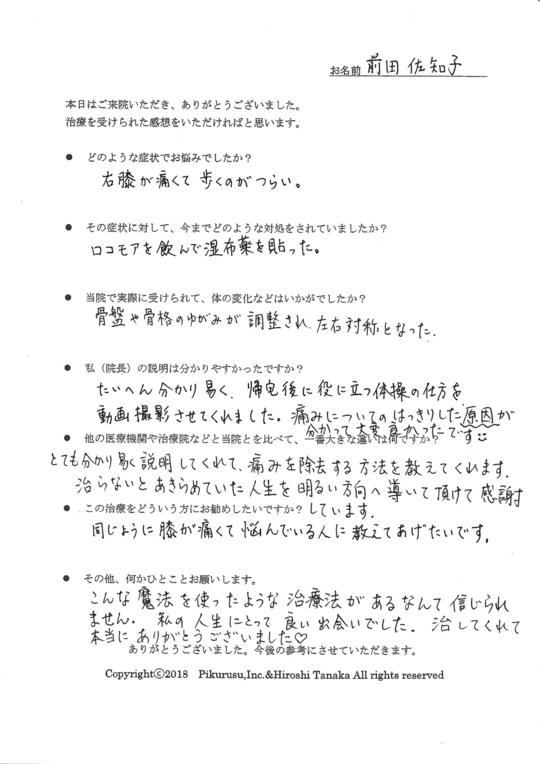 お名前 前田 佐知子
本日はご来院いただき、ありがとうございました。
治療を受けられた感想をいただければと思います。
● どのような症状でお悩みでしたか？
右膝が痛くて 歩くのが つらい。
● その症状に対して、今までどのような対処をされていましたか？
ロコモアを飲んで湿布薬を貼った。
● 当院で実際に受けられて、体の変化などはいかがでしたか？
骨盤や骨格のゆがみが 調整され、左右対称となった。
● 私（院長）の説明は分かりやすかったですか？
たいへん分かり易く、帰宅後に役に立つ体操の仕方を
動画撮影させてくれました。痛みについてのはっきりした原因が
分かって大変良かったです
● 他の医療機関や治療院などと当院とを比べて、一番大きな違いは何ですか？
とても分かり易く説明してくれて、痛みを除去する方法を教えてくれます。
治らないとあきらめていた人生を明るい方向へ導いて頂けて感謝
しています。
● この治療をどういう方にお勧めしたいですか？
同じように膝が痛くて悩んでいる人に教えてあげたいです。
● その他、何かひとことお願いします。
こんな魔法を使ったような治療法があるなんて信じられ
ません。私の人生にとって良い出会いでした。治してくれて
本当にありがとうございました♡
ありがとうございました。今後の参考にさせていただきます。
Copyrightⓒ2018 Pikurusu,Inc.&Hiroshi Tanaka All rights reserved